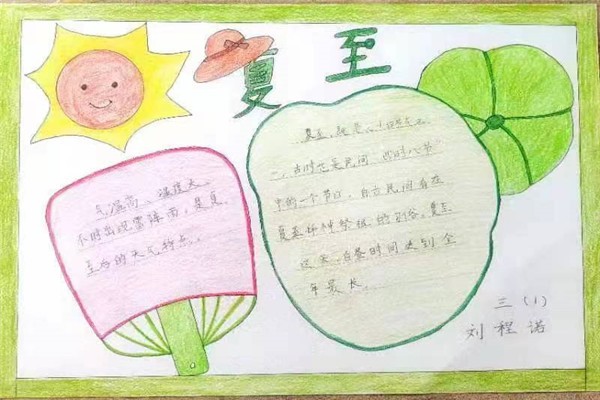 夏至
夏至,既是二十四节气之
一,当时也是民间"四时八节"
中的一个节日,自古民间有在
夏至拜神祭祖的习俗,夏至
这天,白昼时间达到全
年最长。
气温高、湿度大、
不时出现雷阵雨,是夏
至后的天气特点。
三(1)
刘程诺